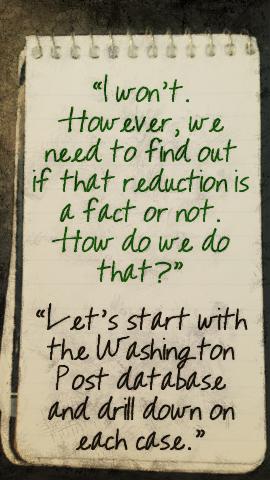 “I won’t.
However, we
need to find out
if that reduction is
a fact or not.
How do we do
that?”
“Let’s start with
the Washington
Post database
and drill down on
each case.”